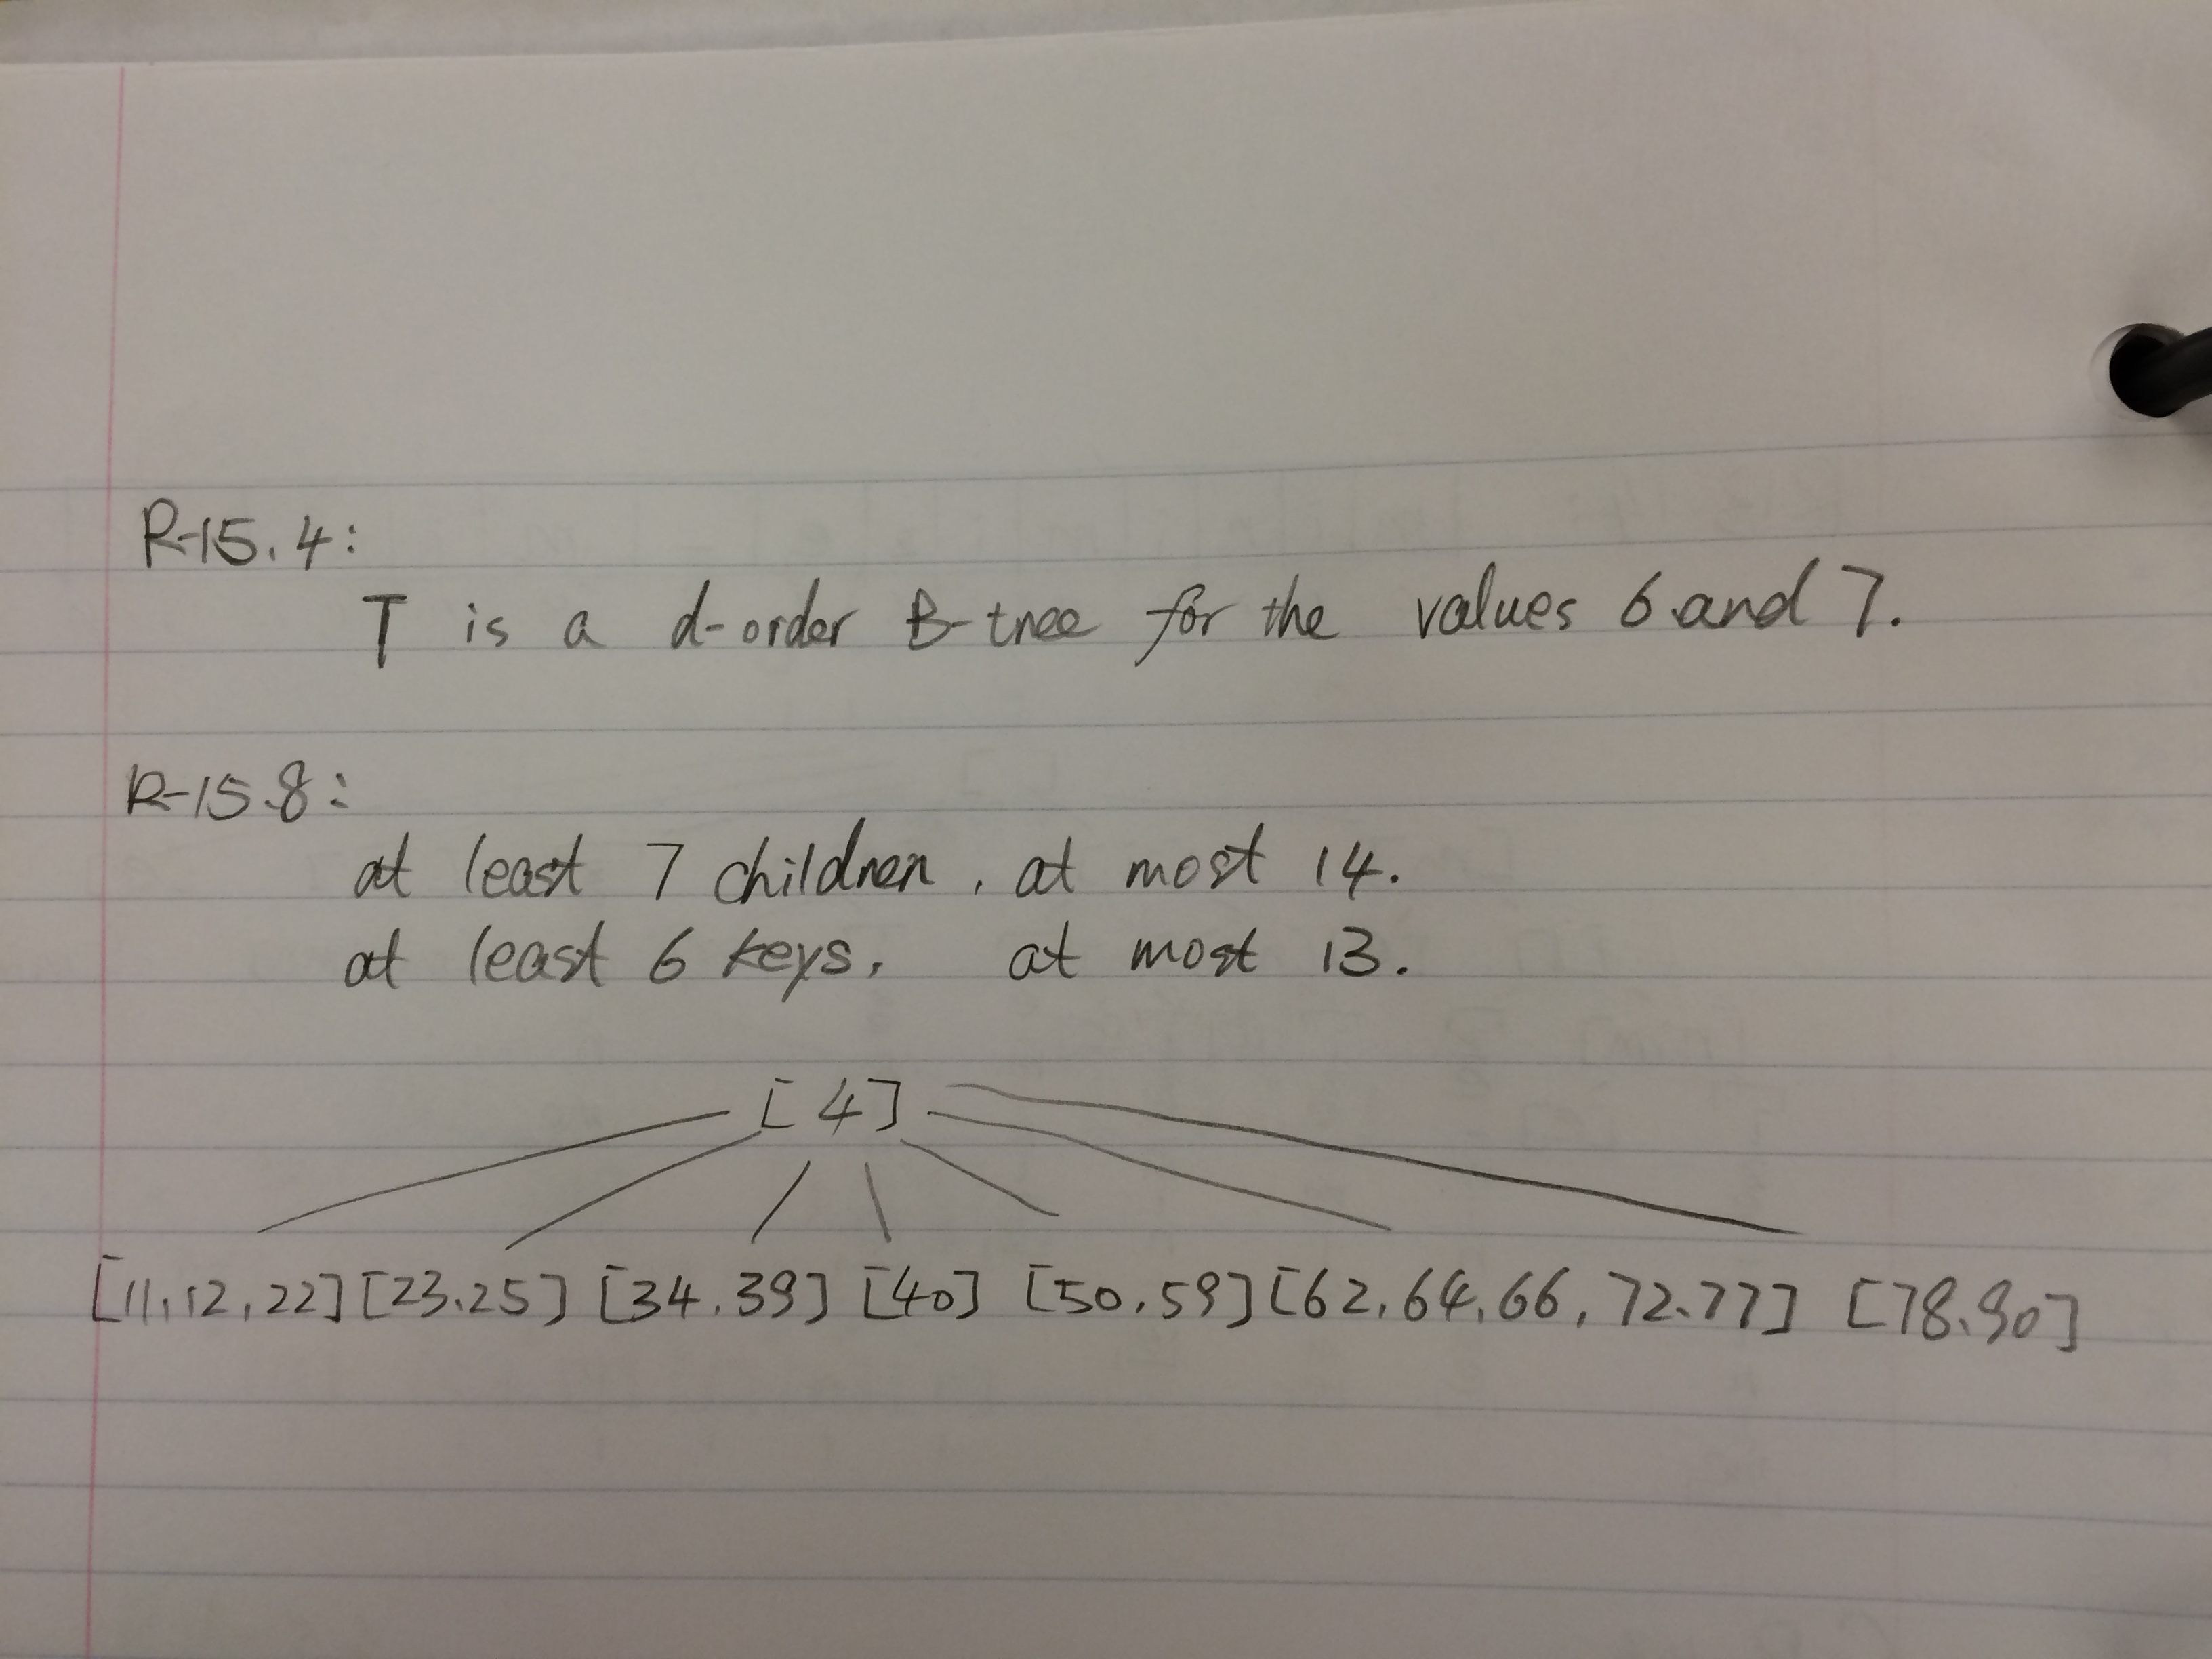 R-15.4:
T is a d-order B-tree for the values 6 and 7.
R-15.8:
at least 7 children, at most 14.
at least 6 keys, at most 13.
[4]
[11,12,22] [23,25] [34,39] [40] [50,59] [62,64,66,72,77] [78,90]